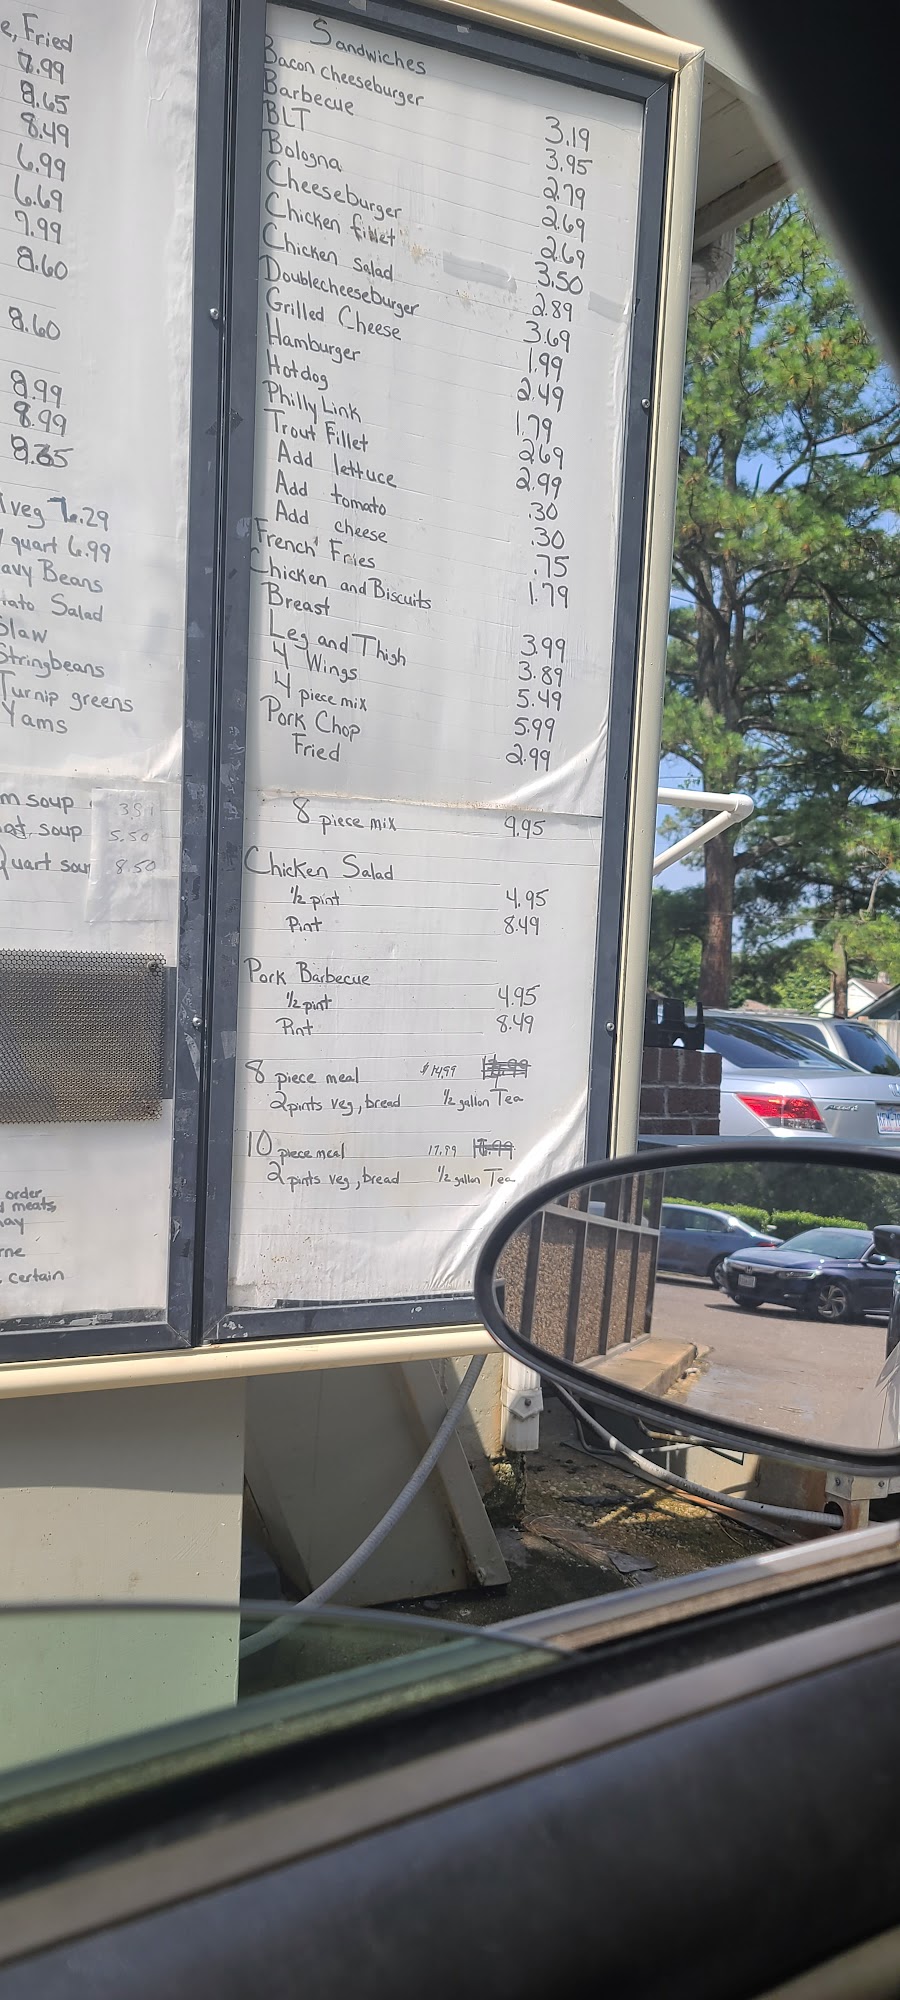 e, Fried
7.99
8.65
8.49
6.99
6.69
7.99
8.60
8.60
8.99
8.99
8.35
veg 7.29
quart 6.99
avy Beans
tato Salad
Slaw
Stringbeans
Turnip greens
Yams
m soup
soup 5.50
Quart soup 8.50
order
meats,
may
me
certain
Sandwiches
Bacon cheeseburger 3.19
Barbecue 3.95
BLT 2.79
Bologna 2.69
Cheeseburger 2.69
Chicken fillet 3.50
Chicken Salad 2.89
Doublecheeseburger 3.69
Grilled Cheese 1.99
Hamburger 2.49
Hotdog 1.79
Philly Link 2.69
Trout Fillet 2.99
Add lettuce .30
Add tomato .30
Add cheese .75
French Fries 1.79
Chicken and Biscuits
Breast 3.99
Leg and Thigh 3.89
4 Wings 5.49
4 piece mix 5.99
Pork Chop 2.99
Fried
8 piece mix 9.95
Chicken Salad
1/2 pint 4.95
Pint 8.49
Pork Barbecue
1/2 pint 4.95
Pint 8.49
8 piece meal $14.99
2 pints veg, bread 1/2 gallon Tea
10 piece meal 17.99
2 pints veg, bread 1/2 gallon Tea